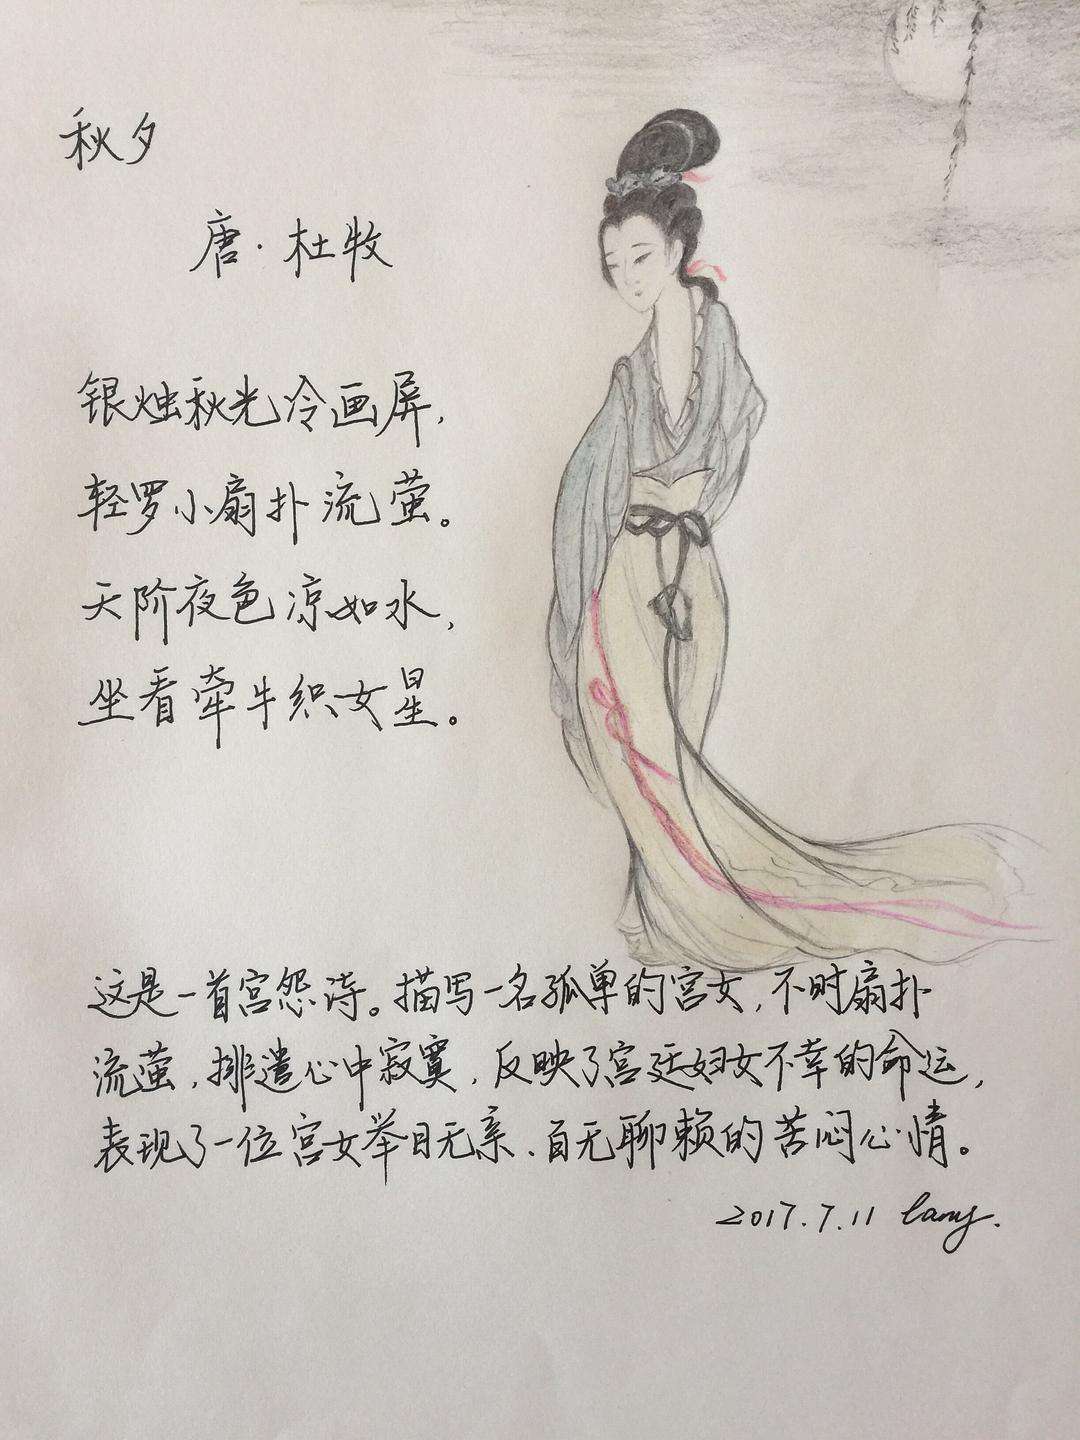 秋夕
唐·杜牧
银烛秋光冷画屏，
轻罗小扇扑流萤。
天阶夜色凉如水，
坐看牵牛织女星。
这是一首宫怨诗。描写一名孤单的宫女，不时扇扑
流萤，排遣心中寂寞，反映了宫廷妇女不幸的命运，
表现了一位宫女举目无亲、百无聊赖的苦闷心情。
2017.7.11